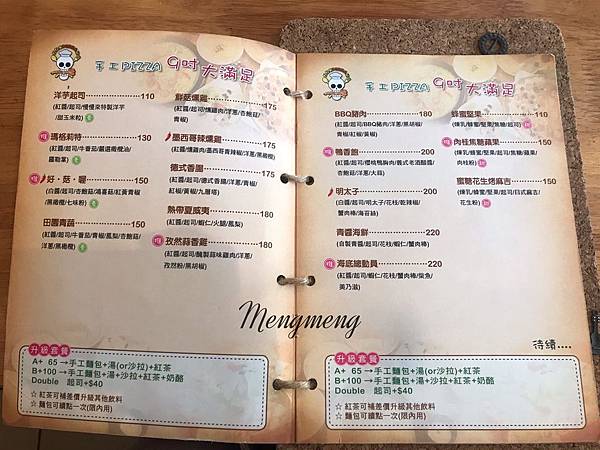 手工PIZZA 9吋大滿足
洋芋起司 110
(紅醬/起司/慢慢來特製洋芋
/甜玉米粒)
推 瑪格莉特 130
(紅醬/起司/牛番茄/嚴選橄欖油/
羅勒葉)
推 好・菇・喔 150
(白醬/起司/杏鮑菇/鴻喜菇/紅黃青椒
/黑橄欖/七味粉)
田園青蔬 150
(紅醬/起司/牛番茄/青椒/鳳梨/杏鮑菇/
洋蔥/黑橄欖)
鮮菇燻雞 175
(紅醬/起司/燻雞肉/洋蔥/杏鮑菇/
青椒)
墨西哥辣燻雞 175
(紅醬/燻雞肉/墨西哥青辣椒/洋蔥/黑橄欖)
德式香圈 175
(紅醬/起司/德式香腸/洋蔥/青椒/
紅椒/黃椒/九層塔)
熱帶夏威夷 180
(紅醬/起司/蝦仁/火腿/鳳梨)
推 孜然蒜香雞 180
(紅醬/起司/醃製蒜味雞肉/洋蔥/
孜然粉/黑胡椒)
升級套餐
A+ 65→手工麵包+湯(or沙拉)+紅茶
B+100→手工麵包+湯+沙拉+紅茶+奶酪
Double 起司+$40
☆ 紅茶可補差價升級其他飲料
☆ 麵包可續點一次(限內用)
手工PIZZA 9吋大滿足
BBQ豬肉 180
(紅醬/起司/BBQ豬肉/洋蔥/黑胡椒/
青椒/紅椒/黃椒)
推 鴨香飽 200
(紅醬/起司/櫻桃鴨胸肉/義式老酒醋醬
/杏鮑菇/洋蔥/大蒜)
明太子 200
(白醬/起司/明太子/花枝/乾辣椒/
蟹肉棒/海苔絲)
青醬海鮮 220
(自製青醬/起司/花枝/蝦仁/蟹肉棒)
推 海底總動員 220
(紅醬/起司/蝦仁/花枝/蟹肉棒/柴魚/
美乃滋)
蜂蜜堅果 110
(煉乳/蜂蜜/堅果/焦糖/起司)
推 肉桂焦糖蘋果 150
(煉乳/蜂蜜/堅果/起司/焦糖/蘋果/
肉桂粉)
蜜糖花生烤麻吉 150
(煉乳/蜂蜜/堅果/起司/日式麻吉/
花生粉)
待續....
升級套餐
A+ 65→手工麵包+湯(or沙拉)+紅茶
B+100→手工麵包+湯+沙拉+紅茶+奶酪
Double 起司+$40
☆ 紅茶可補差價升級其他飲料
☆ 麵包可續點一次(限內用)
Mengmeng